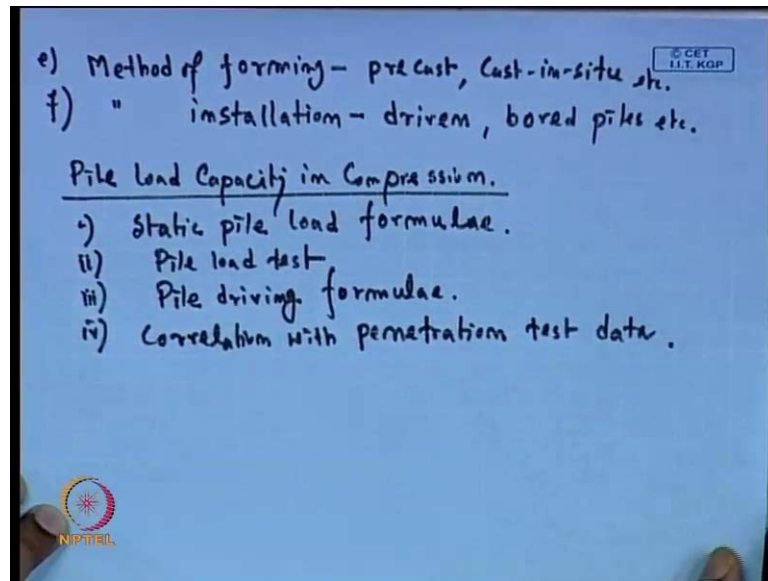 e) Method of forming - precast, Cast-in-situ etc.
© CET
I.I.T. KGP
f) " installation - driven, bored piles etc.
Pile Load Capacity in Compression.
i) Static pile load formulae.
ii) Pile load test
iii) Pile driving formulae.
iv) Correlation with penetration test data.
NPTEL